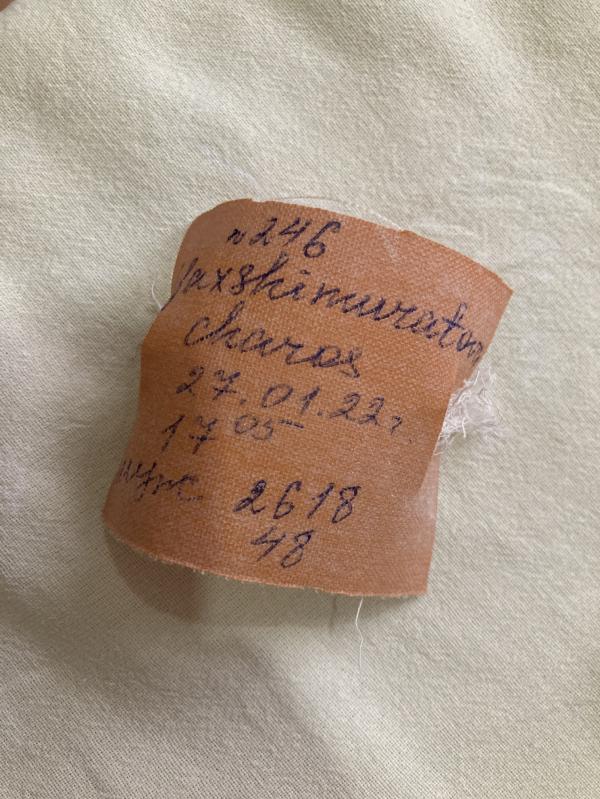 n 246
Yaxshimuratov
charos
27.01.22г.
17 05
муж 2618
48